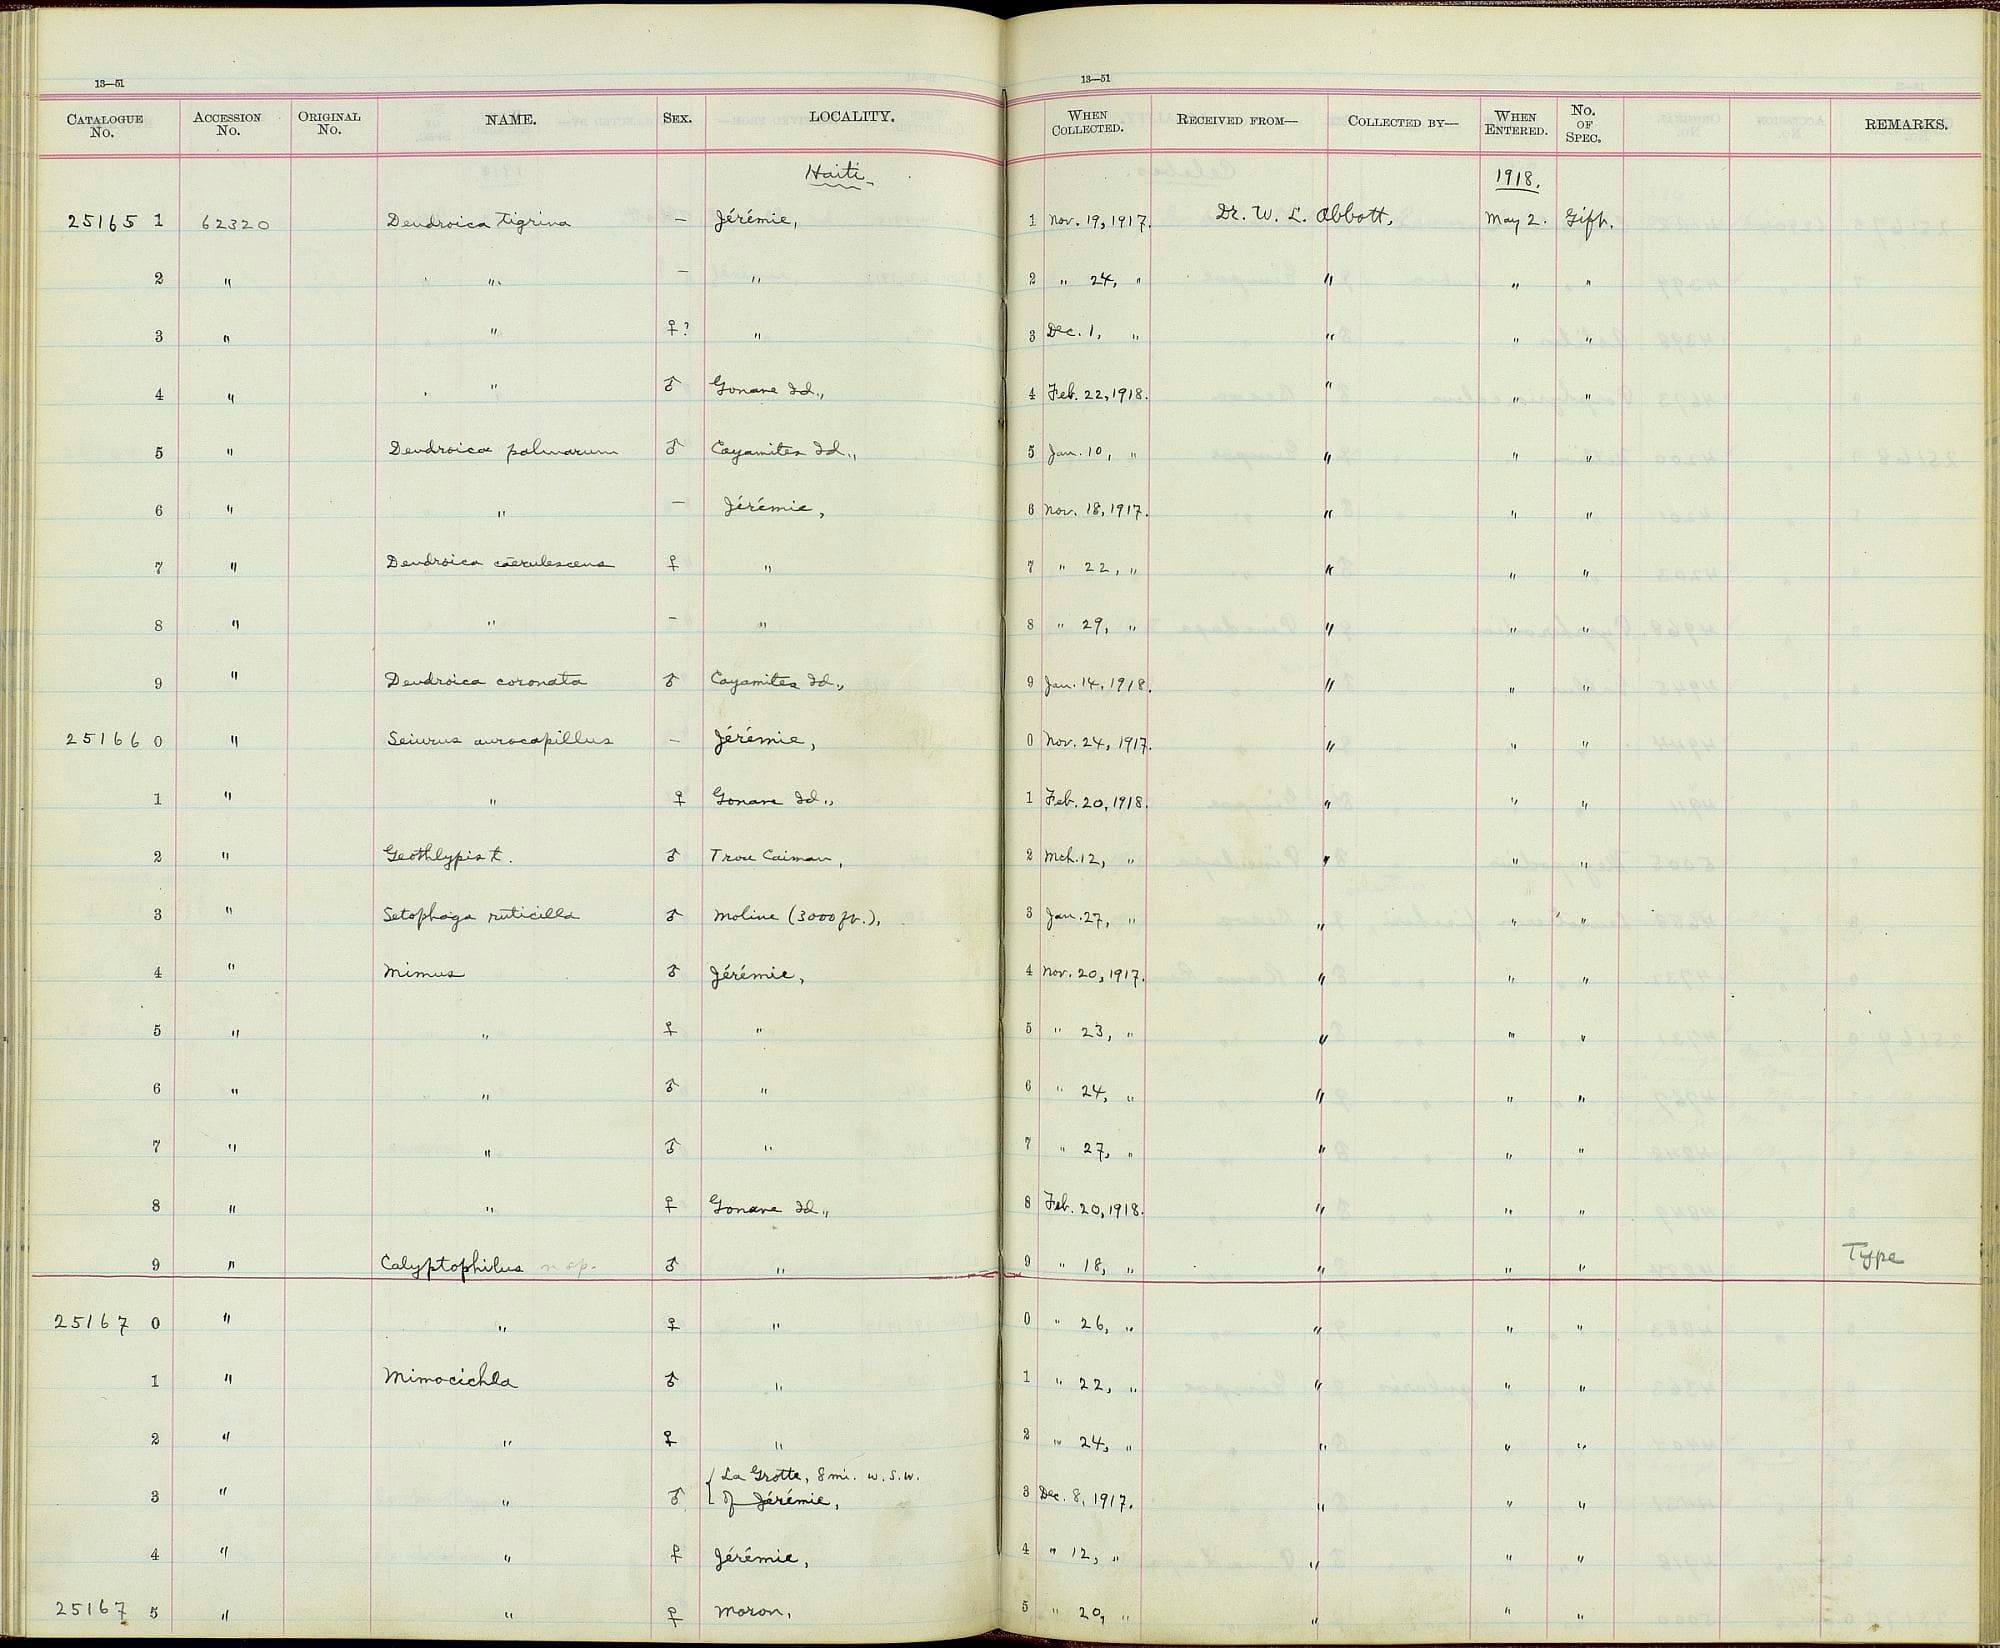 13—51
CATALOGUE No. ACCESSION No. ORIGINAL No. NAME. SEX. LOCALITY.
Haiti
25165 1 62320 Dendroica tigrina — Jérémie,
2 " " — "
3 " " ♀? "
4 " " ♂ Gonave Id.,
5 " Dendroica palmarum ♂ Cayamites Id.,
6 " " — Jérémie,
7 " Dendroica caerulescens ♀ "
8 " " — "
9 " Dendroica coronata ♂ Cayamites Id.,
25166 0 " Seiurus aurocapillus — Jérémie,
1 " " ♀ Gonave Id.,
2 " Geothlypis t. ♂ Trou Caiman,
3 " Setophaga ruticilla ♂ Moline (3000 ft.),
4 " Mimus ♂ Jérémie,
5 " " ♀ "
6 " " ♂ "
7 " " ♂ "
8 " " ♀ Gonave Id.,
9 " Calyptophilus n sp. ♂ "
25167 0 " " ♀ "
1 " Mimocichla ♂ "
2 " " ♀ "
3 " " ♂ { La Grotte, 8 mi. w. s. w.
of Jérémie,
4 " " ♀ Jérémie,
25167 5 " " ♀ Moron,
13—51
WHEN COLLECTED. RECEIVED FROM— COLLECTED BY— WHEN ENTERED. No. OF SPEC. REMARKS.
1918.
1 Nov. 19, 1917. Dr. W. L. Abbott, May 2. Gift.
2 " 24, " " " "
3 Dec. 1, " " " "
4 Feb. 22, 1918. " " "
5 Jan. 10, " " " "
6 Nov. 18, 1917. " " "
7 " 22, " " " "
8 " 29, " " " "
9 Jan. 14, 1918. " " "
0 Nov. 24, 1917. " " "
1 Feb. 20, 1918. " " "
2 Mch. 12, " " " "
3 Jan. 27, " " " "
4 Nov. 20, 1917. " " "
5 " 23, " " " "
6 " 24, " " " "
7 " 27, " " " "
8 Feb. 20, 1918. " " "
9 " 18, " " " " Type
0 " 26, " " " "
1 " 22, " " " "
2 " 24, " " " "
3 Dec. 8, 1917. " " "
4 " 12, " " " "
5 " 20, " " " "